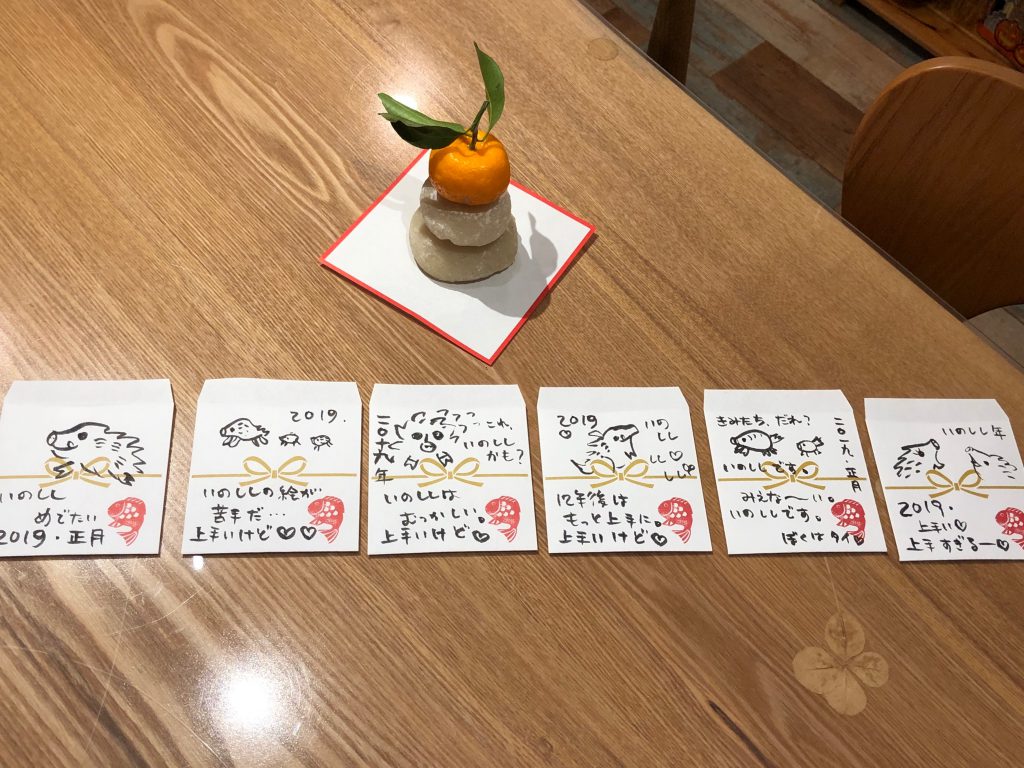 いのしし
めでたい
2019・正月
2019.
いのししの絵が
苦手だ…
上手いけど♡♡
二〇一九年
これ、
いのしし
かも?
いのししは
むっかしい。
上手いけど♡
2019
♡
いの
しし
しし♡
しし
12年後は
もっと上手に。
上手いけど♡
きみたち、だれ?
二〇一九 正月
いのししです。
みえな〜い。
いのししです。
ぼくはタイ
いのしし年
2019.
上手い♡
上手すぎるー♡